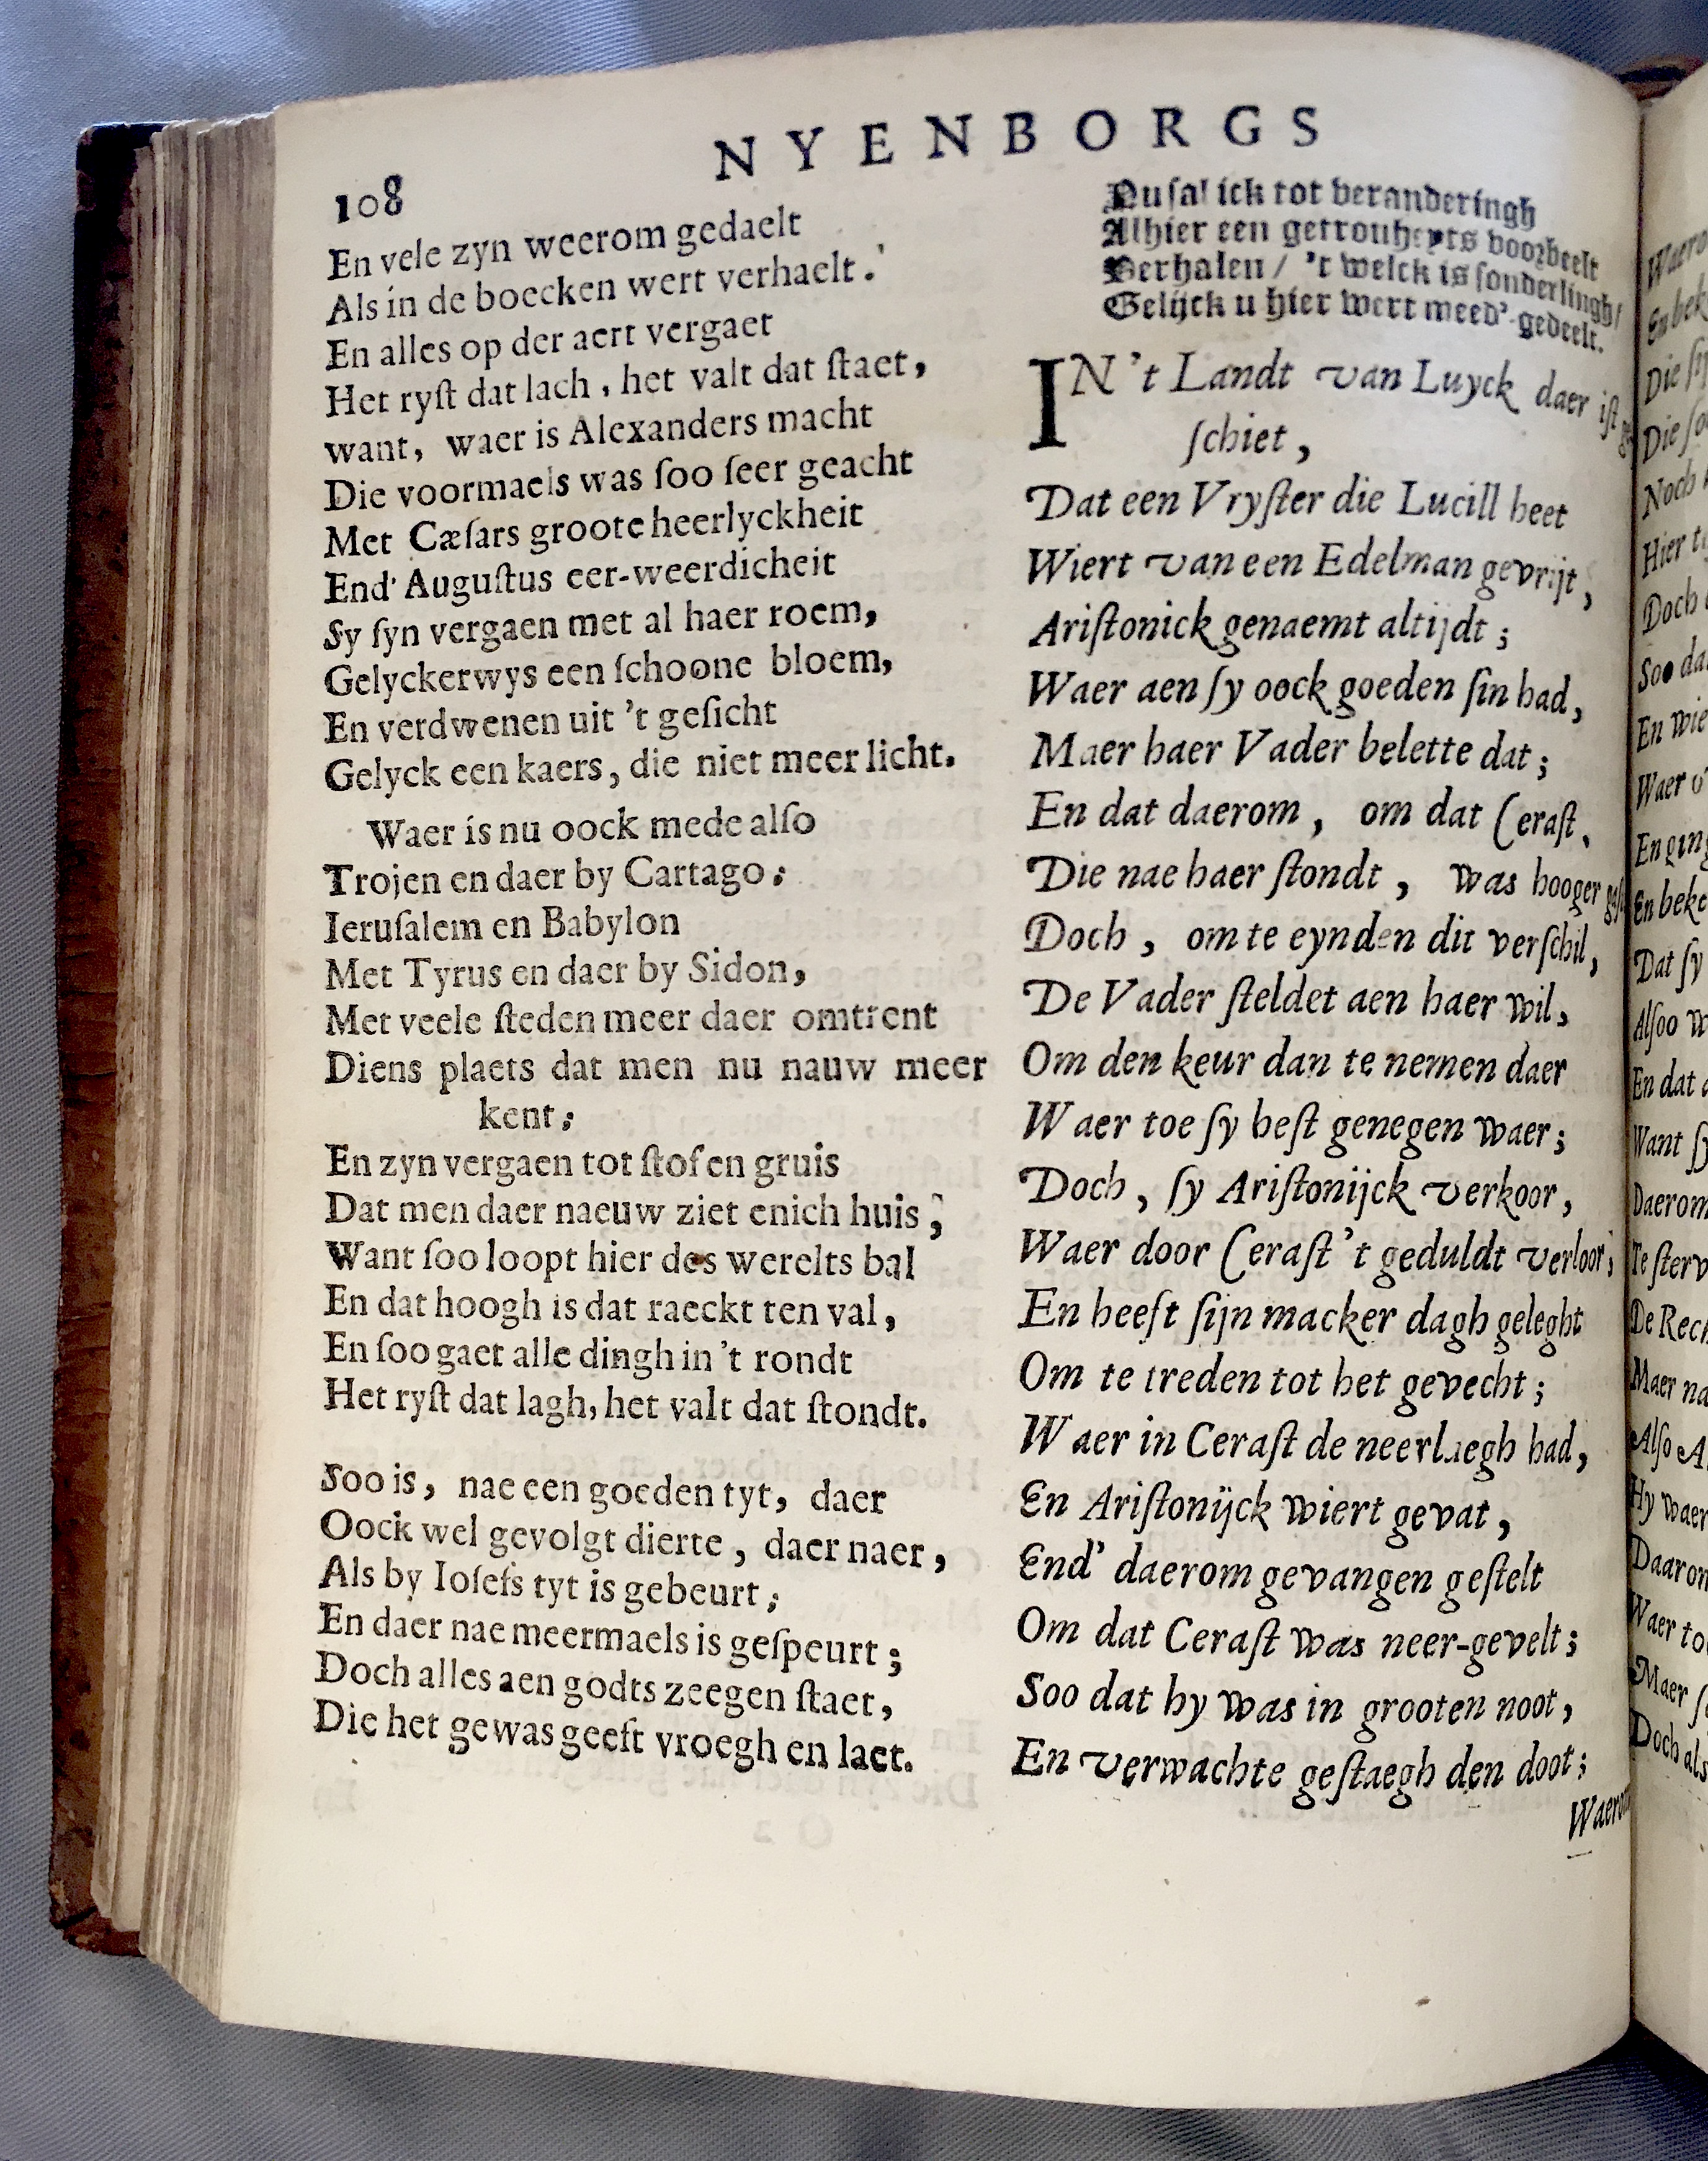 NYENBORGS
108
En vele zyn weerom gedaelt
Als in de boecken wert verhaelt.
En alles op der aert vergaet
Het ryſt dat lach, het valt dat ſtaet,
want, waer is Alexanders macht
Die voormaels was ſoo ſeer geacht
Met Cæſars groote heerlyckheit
End' Auguſtus eer-weerdicheit
Sy ſyn vergaen met al haer roem,
Gelyckerwys een ſchoone bloem,
En verdwenen uit 't geſicht
Gelyck een kaers, die niet meer licht.
Waer is nu oock mede alſo
Trojen en daer by Cartago;
Ieruſalem en Babylon
Met Tyrus en daer by Sidon,
Met veele ſteden meer daer omtrent
Diens plaets dat men nu nauw meer
kent;
En zyn vergaen tot ſtof en gruis
Dat men daer naeuw ziet enich huis,
Want ſoo loopt hier des werelts bal
En dat hoogh is dat raeckt ten val,
En ſoo gaet alle dingh in 't rondt
Het ryſt dat lagh, het valt dat ſtondt.
Soo is, nae een goeden tyt, daer
Oock wel gevolgt dierte, daer naer,
Als by Ioſefs tyt is gebeurt;
En daer nae meermaels is geſpeurt;
Doch alles aen godts zeegen ſtaet,
Die het gewas geeft vroegh en laet.
Nu ſal ick tot veranderingh
Alhier een getrouheyts voorbeelt
Verhalen / 't welck is ſonderlingh/
Gelijck u hier wert meed'-gedeelt.
IN 't Landt van Luyck daer iſt ge
ſchiet,
Dat een Vryſter die Lucill heet
Wiert van een Edelman gevrijt,
Ariſtonick genaemt altijdt;
Waer aen ſy oock goeden ſin had,
Maer haer Vader belette dat;
En dat daerom, om dat Ceraſt,
Die nae haer ſtondt, was hooger
Doch, om te eynden dit verſchil,
De Vader ſteldet aen haer wil,
Om den keur dan te nemen daer
Waer toe ſy beſt genegen waer;
Doch, ſy Ariſtonijck verkoor,
Waer door Ceraſt 't geduldt verloor;
En heeft ſijn macker dagh geleght
Om te treden tot het gevecht;
Waer in Ceraſt de neerlaegh had,
En Ariſtonijck wiert gevat,
End' daerom gevangen geſtelt
Om dat Ceraſt was neer-gevelt;
Soo dat hy was in grooten noot,
En verwachte geſtaegh den doot;
En bek
Die
Die
Noch
Hier
Doch
Soo
En wie
Waer
En ging
En beke
Dat ſy
Alſoo
En dat
Want
Daerom
Te ſterv
De Rech
Maer
Alſo
Hy waer
Daarom
Waer
Maer
Doch als